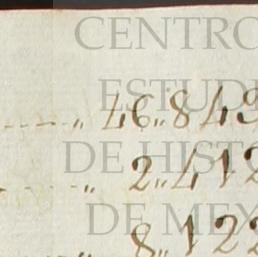 CENTRO
ESTUD
46„849
DE HIST
2„412
DE MEX
8„122